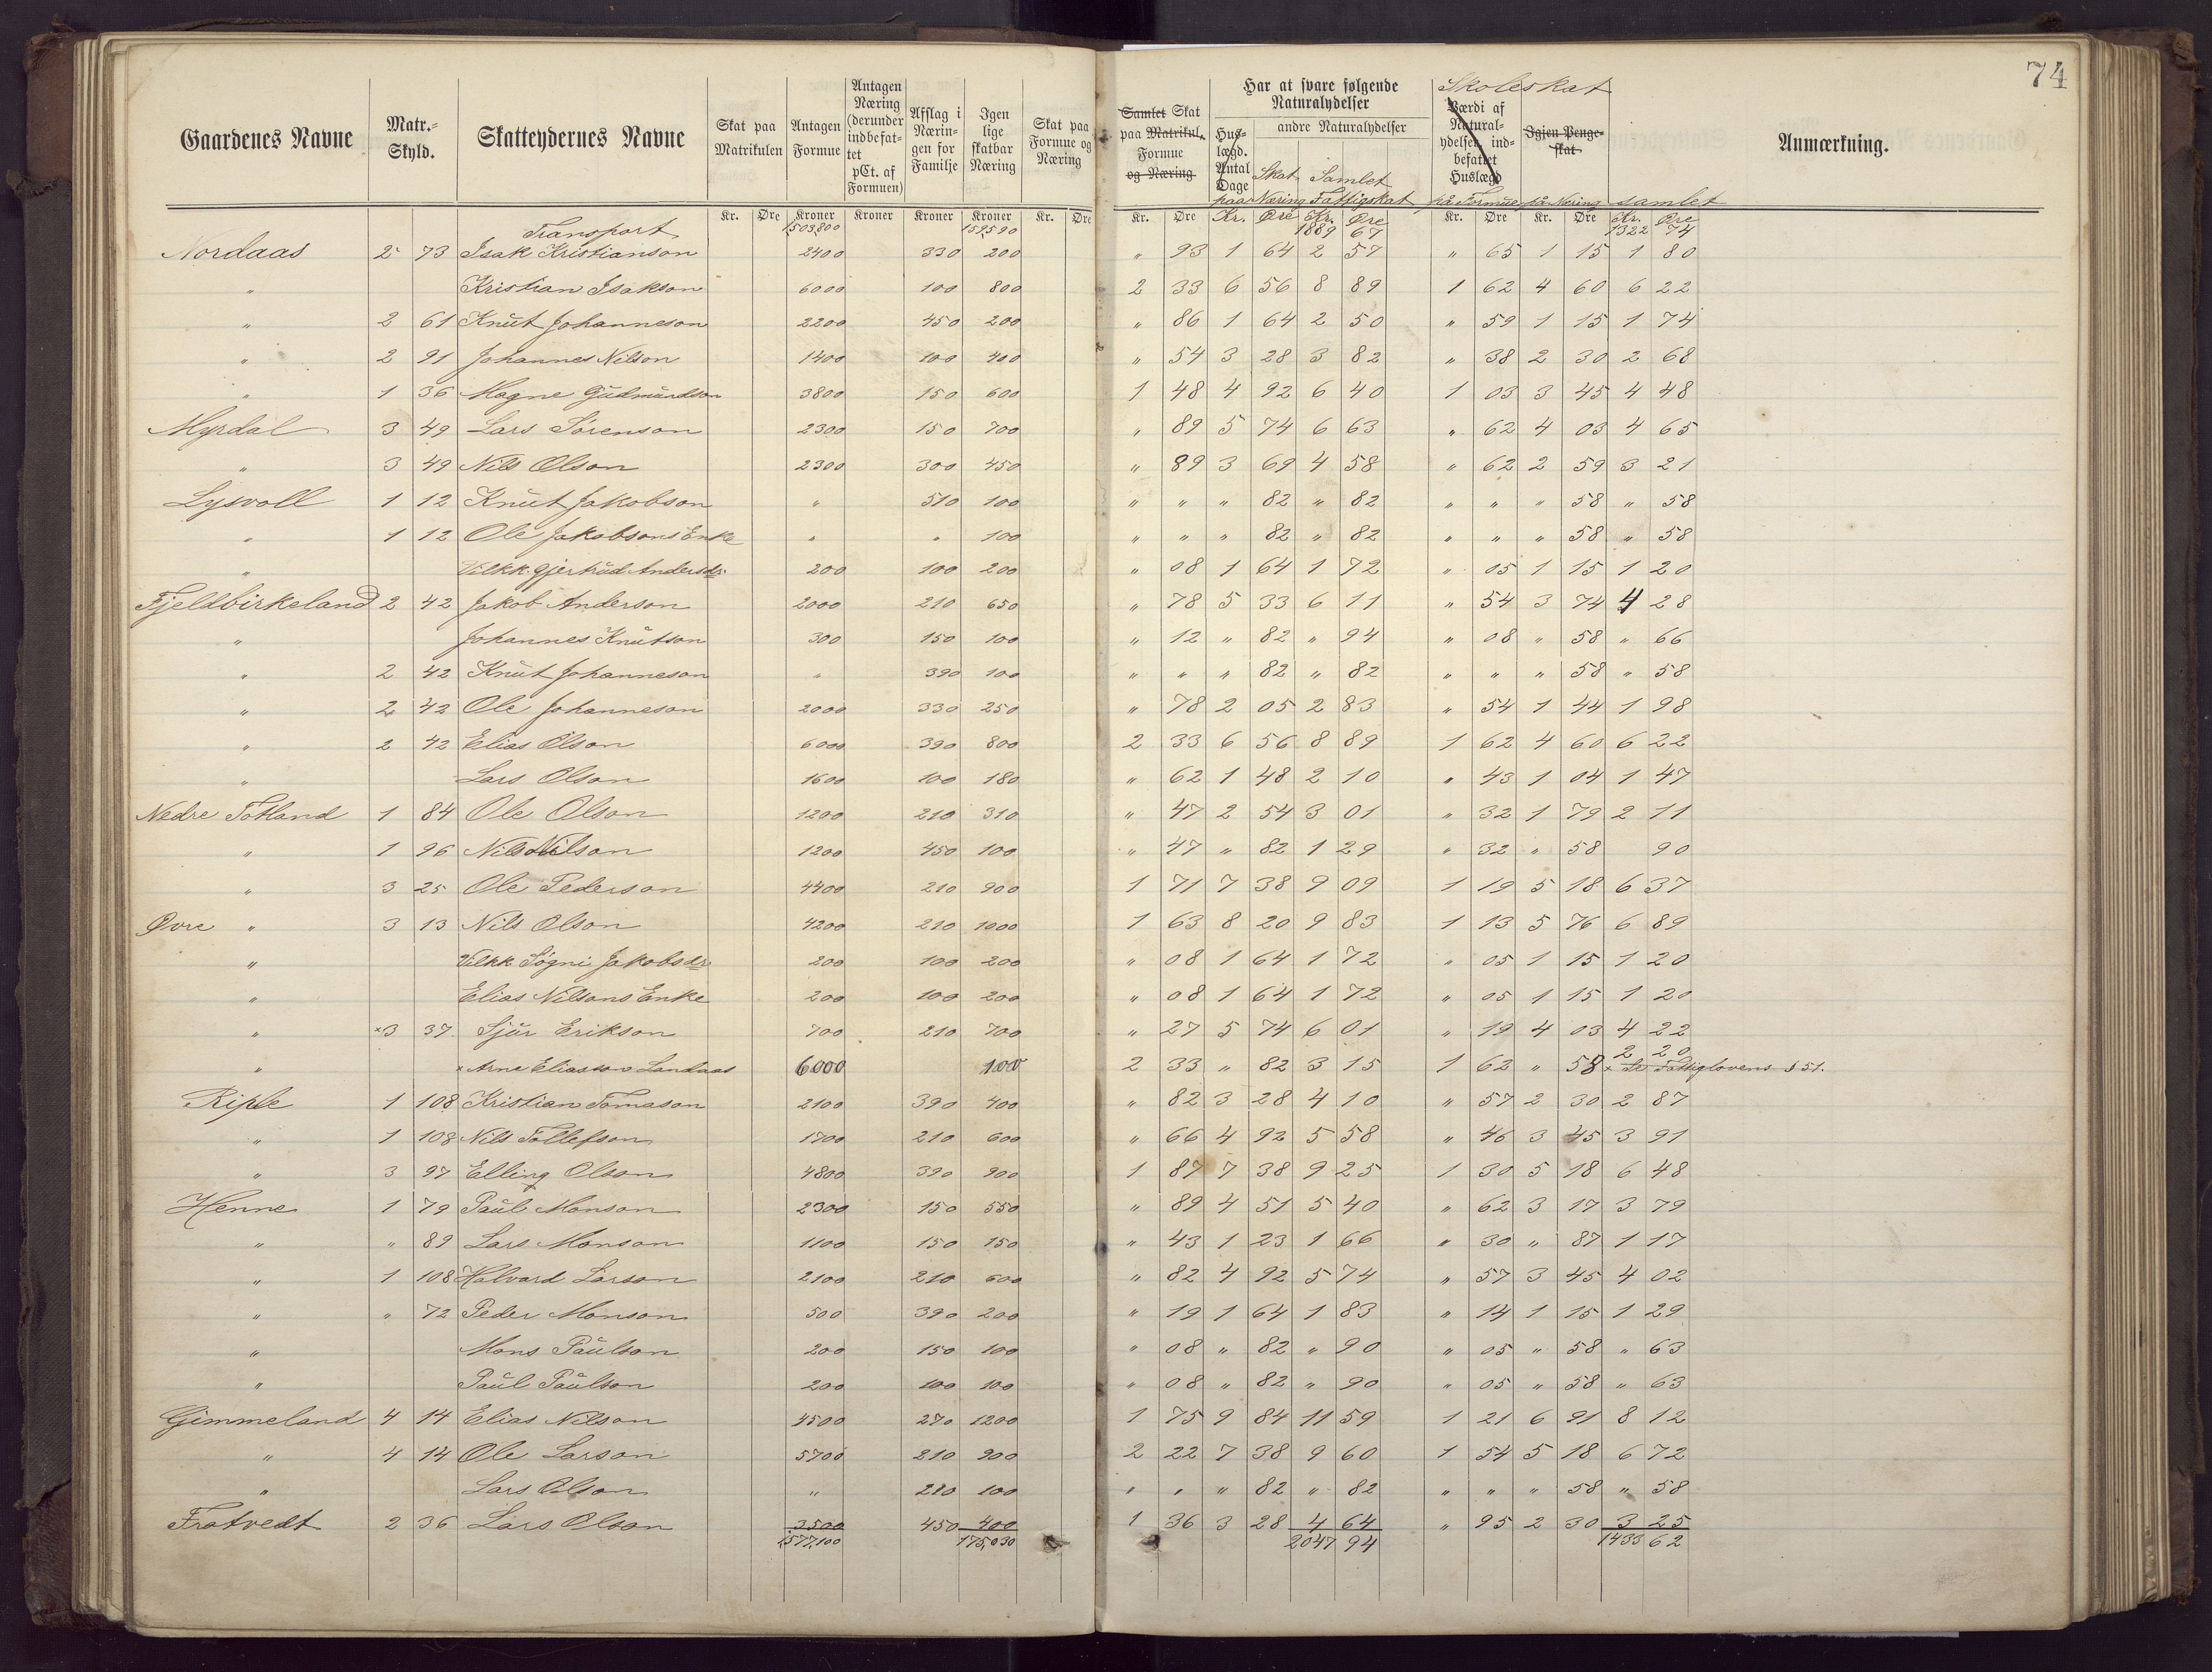 74
Gaardenes Navne | Matr.-Skyld. | Skatteydernes Navne | Skat paa Matrikulen | Antagen Formue | Antagen Næring (derunder indbefattet pCt. af Formuen) | Afslag i Næringen for Familje | Igen lige skatbar Næring | Skat paa Formue og Næring | Samlet Skat paa Matrikul, Formue og Næring | Har at svare følgende Naturalydelser | Huslægd. Antal Dage | andre Naturalydelser | Skat paa Næring | Samlet Fattigskat | Skoleskat | Værdi af Naturalydelser indbefattet Huslægd | på Formue | Igjen Pengeskat | på Næring | samlet | Anmærkning.
Kr. Øre Kroner Kroner Kroner Kroner Kr. Øre Kr. Øre Kr. Øre Kr. Øre Kr. Øre Kr. Øre Kr. Øre
Transport 1,503,800 159590 1889 67 1322 74
Nordaas 2 73 Isak Kristianson 2400 330 200 " 93 1 64 2 57 " 65 1 15 1 80
" Kristian Isakson 6000 100 800 2 33 6 56 8 89 1 62 4 60 6 22
" 2 61 Knut Johanneson 2200 450 200 " 86 1 64 2 50 " 59 1 15 1 74
" 2 91 Johannes Nilson 1400 100 400 " 54 3 28 3 82 " 38 2 30 2 68
" 1 36 Magne Gudmundson 3800 150 600 1 48 4 92 6 40 1 03 3 45 4 48
Myrdal 3 49 Lars Sörenson 2300 150 700 " 89 5 74 6 63 " 62 4 03 4 65
" 3 49 Nils Olson 2300 300 450 " 89 3 69 4 58 " 62 2 59 3 21
Lysvoll 1 12 Knut Jakobson " 510 100 " " " 82 " 82 " " " 58 " 58
" 1 12 Ole Jakobsons Enke " " 100 " " " 82 " 82 " " " 58 " 58
" Vilkk. Gjertrud Andersdr. 200 100 200 " 08 1 64 1 72 " 05 1 15 1 20
Fjeldbirkeland 2 42 Jakob Anderson 2000 210 650 " 78 5 33 6 11 " 54 3 74 4 28
" Johannes Knutson 300 150 100 " 12 " 82 " 94 " 08 " 58 " 66
" 2 42 Knut Johanneson " 390 100 " " " 82 " 82 " " " 58 " 58
" 2 42 Ole Johanneson 2000 330 250 " 78 2 05 2 83 " 54 1 44 1 98
" 2 42 Elias Olson 6000 390 800 2 33 6 56 8 89 1 62 4 60 6 22
" Lars Olson 1600 100 180 " 62 1 48 2 10 " 43 1 04 1 47
Nedre Totland 1 84 Ole Olson 1200 210 310 " 47 2 54 3 01 " 32 1 79 2 11
" 1 96 Nils Nilson 1200 450 100 " 47 " 82 1 29 " 32 " 58 90
" 3 25 Ole Pederson 4400 210 900 1 71 7 38 9 09 1 19 5 18 6 37
Øvre " 3 13 Nils Olson 4200 210 1000 1 63 8 20 9 83 1 13 5 76 6 89
" Vilkk. Sögni Jakobsdr. 200 100 200 " 08 1 64 1 72 " 05 1 15 1 20
" Elias Nilsons Enke 200 100 200 " 08 1 64 1 72 " 05 1 15 1 20
" ×3 37 Sjur Erikson 700 210 700 " 27 5 74 6 01 " 19 4 03 4 22
" × Arne Eliasson Landaas 6000 100 2 33 " 82 3 15 1 62 " 58 2 20 × Se Fattiglovens § 51.
Riple 1 108 Kristian Tomason 2100 390 400 " 82 3 28 4 10 " 57 2 30 2 87
" 1 108 Nils Tollefson 1700 210 600 " 66 4 92 5 58 " 46 3 45 3 91
" 3 97 Elling Olson 4800 390 900 1 87 7 38 9 25 1 30 5 18 6 48
Henne 1 79 Paul Monson 2300 150 550 " 89 4 51 5 40 " 62 3 17 3 79
" " 89 Lars Monson 1100 150 150 " 43 1 23 1 66 " 30 " 87 1 17
" 1 108 Halvard Larson 2100 210 600 " 82 4 92 5 74 " 57 3 45 4 02
" " 72 Peder Monson 500 390 200 " 19 1 64 1 83 " 14 1 15 1 29
" Mons Paulson 200 150 100 " 08 " 82 " 90 " 05 " 58 " 63
" Paul Paulson 200 100 100 " 08 " 82 " 90 " 05 " 58 " 63
Gimmeland 4 14 Elias Nilson 4500 270 1200 1 75 9 84 11 59 1 21 6 91 8 12
" 4 14 Ole Larson 5700 210 900 2 22 7 38 9 60 1 54 5 18 6 72
" Lars Olson " 210 100 " " " 82 " 82 " " " 58 " 58
Fratvedt 2 36 Lars Olson 3500 450 400 1 36 3 28 4 64 " 95 2 30 3 25
1,577,100 175,030 2047 94 1433 62